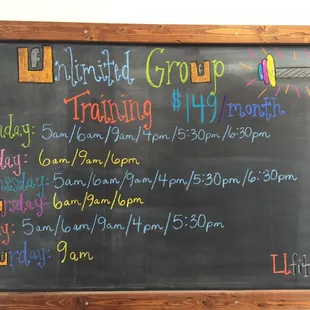 Unlimited Group
Training $149/month
day: 5am/6am/9am/4pm/5:30pm/6:30pm
day: 6am/9am/6pm
nesday: 5am/6am/9am/4pm/5:30pm/6:30pm
ursday: 6am/9am/6pm
y: 5am/6am/9am/4pm/5:30pm
urday: 9am
Ufit